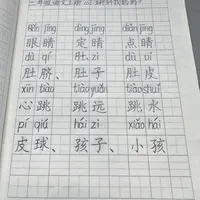 yǎn jing dìng jīng diǎn jīng
眼睛 定睛 点睛
dù qí dù zi dù pí
肚脐、肚子 肚皮
xīn tiào tiào yuǎn tiào shuǐ
心跳 跳远 跳水
pí qiú hái zi xiǎo hái
皮球、孩子、小孩